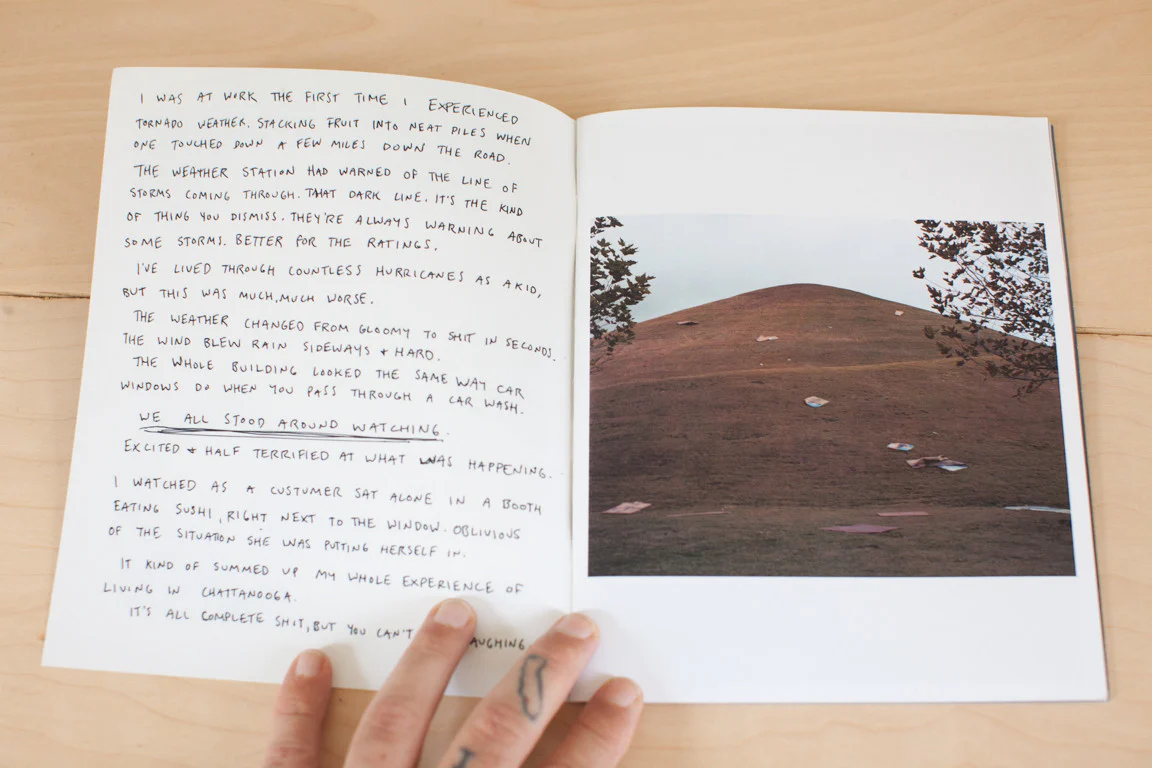 I WAS AT WORK THE FIRST TIME I EXPERIENCED
TORNADO WEATHER. STACKING FRUIT INTO NEAT PILES WHEN
ONE TOUCHED DOWN A FEW MILES DOWN THE ROAD.
THE WEATHER STATION HAD WARNED OF THE LINE OF
STORMS COMING THROUGH. THAT DARK LINE. IT'S THE KIND
OF THING YOU DISMISS. THEY'RE ALWAYS WARNING ABOUT
SOME STORMS. BETTER FOR THE RATINGS.
I'VE LIVED THROUGH COUNTLESS HURRICANES AS A KID,
BUT THIS WAS MUCH, MUCH WORSE.
THE WEATHER CHANGED FROM GLOOMY TO SHIT IN SECONDS.
THE WIND BLEW RAIN SIDEWAYS + HARD.
THE WHOLE BUILDING LOOKED THE SAME WAY CAR
WINDOWS DO WHEN YOU PASS THROUGH A CAR WASH.
WE ALL STOOD AROUND WATCHING.
EXCITED + HALF TERRIFIED AT WHAT WAS HAPPENING.
I WATCHED AS A CUSTUMER SAT ALONE IN A BOOTH
EATING SUSHI, RIGHT NEXT TO THE WINDOW. OBLIVIOUS
OF THE SITUATION SHE WAS PUTTING HERSELF IN.
IT KIND OF SUMMED UP MY WHOLE EXPERIENCE OF
LIVING IN CHATTANOOGA.
IT'S ALL COMPLETE SHIT, BUT YOU CAN'T AUGHING